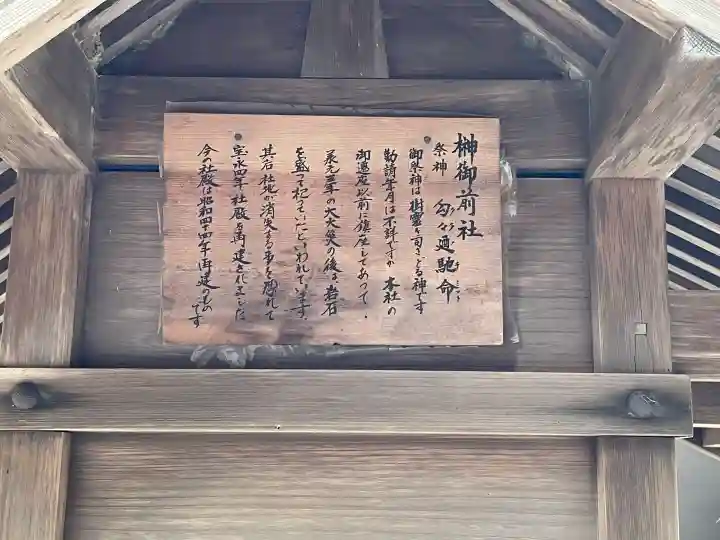 榊御前社
祭神 句々廼馳命
御祭神は樹霊を司さどる神です
勧請年月は不詳ですが 本社の
御遷座以前に鎮座してあって、
元年の大火災の後は岩石
を盛って祀っていたといわれています。
其后 社地が消失する事を恐れて
宝永四年 社殿を再建されました
今の社殿は昭和四十四年再建のもの
です